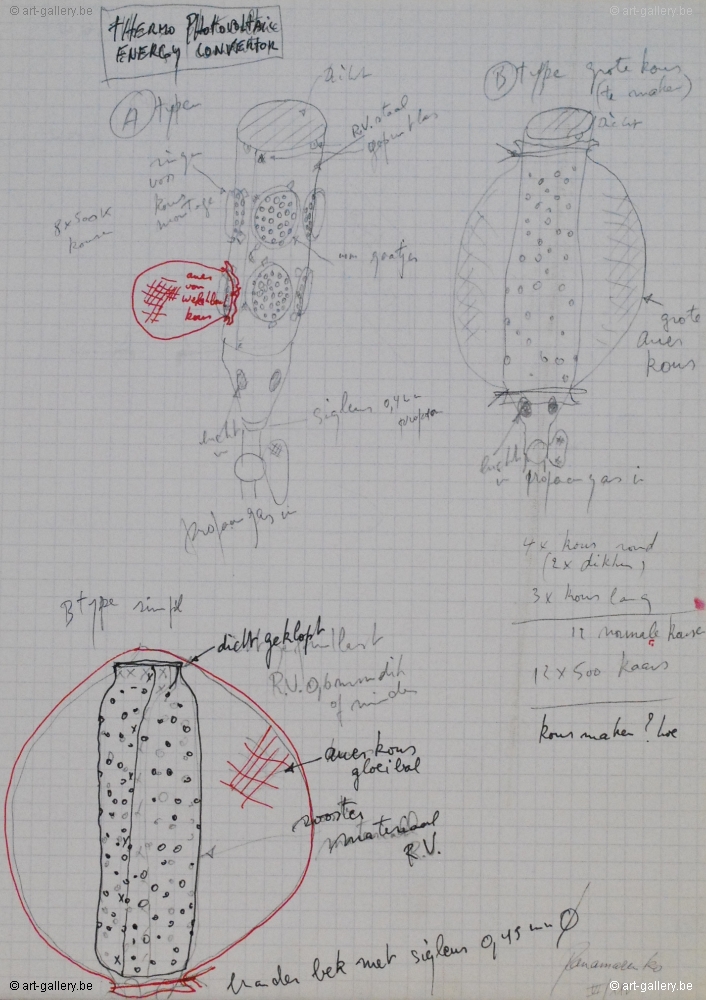 © art-gallery.be
© art-gallery.be
tHERMO PHOTOVOLTAIC
ENERGY CONVERTOR
A type
dicht
R.V. staal
gepuntlas
ringen
von
kous
montage
8 x 500K
kousen
mm gaatjes
auer
von
kous
lucht
in
sigleur 0,4 mm
propaan
propaan gas in
B type grote kous
(te maken)
dicht
grote
auer
kous
lucht
in
propaan gas in
4x kous rond
(2x dikker)
3x kous lang
12 normale kouse
12 x 500 kaars
kous maken? hoe
B type simpl
dichtgeklopt
R.V. 0,6 mm dik
of minder
auer kous
gloeibol
rooster
materiaal
R.V.
brander bek met sigleur 0,45 mm Ø
Panamarenko
© art-gallery.be
© art-gallery.be